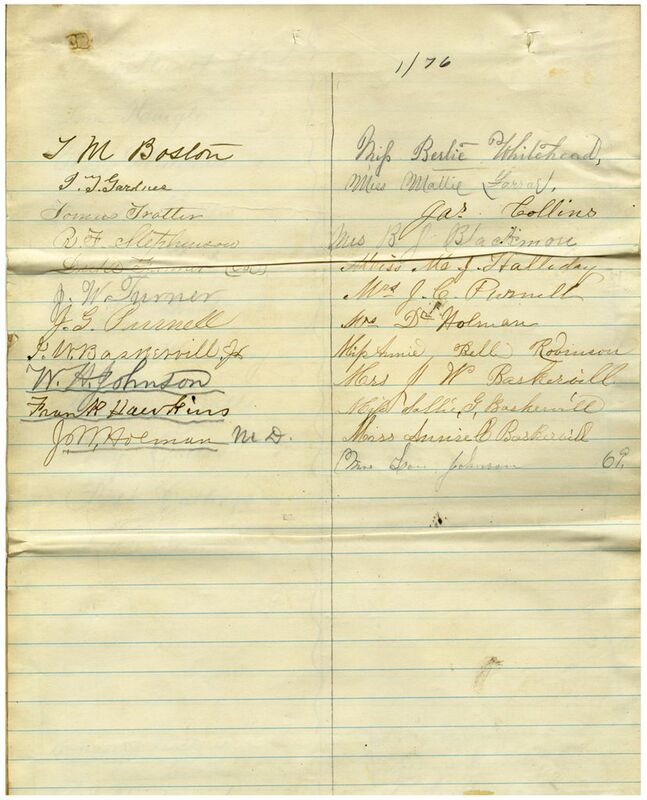 1/76
T M Boston
P. T. Gardner
Tomus Trotter
R. F. Stephenson
J. W. Turner
J. G. Purnell
P. W. Baskervill, Jr
W. H. Johnson
Frank Hawkins
J. W. Holman M D.
Miss Bertie Whitehead,
Miss Mattie
Jas Collins
Mrs B J Blackmon
Miss M. J. Halliday
Mrs J. C. Purnell
Mrs Dr Holman
Miss Annie Bell Robinson
Mrs J W Baskervill
Miss Sallie G. Baskervill
Miss Baskervill
Mrs Lou Johnson 69